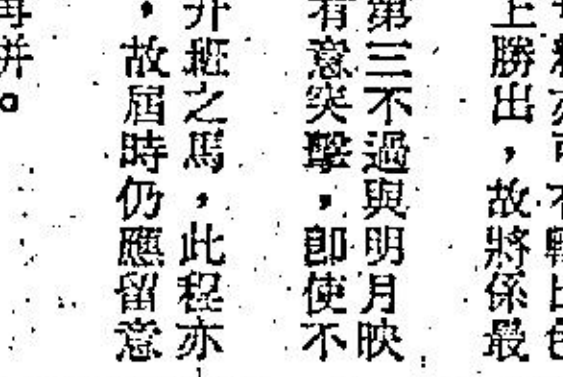 上勝出，故將係最
第三不過與明月映
有意突擊，即使不
升班之馬，此程亦
，故屆時仍應留意
再拼。